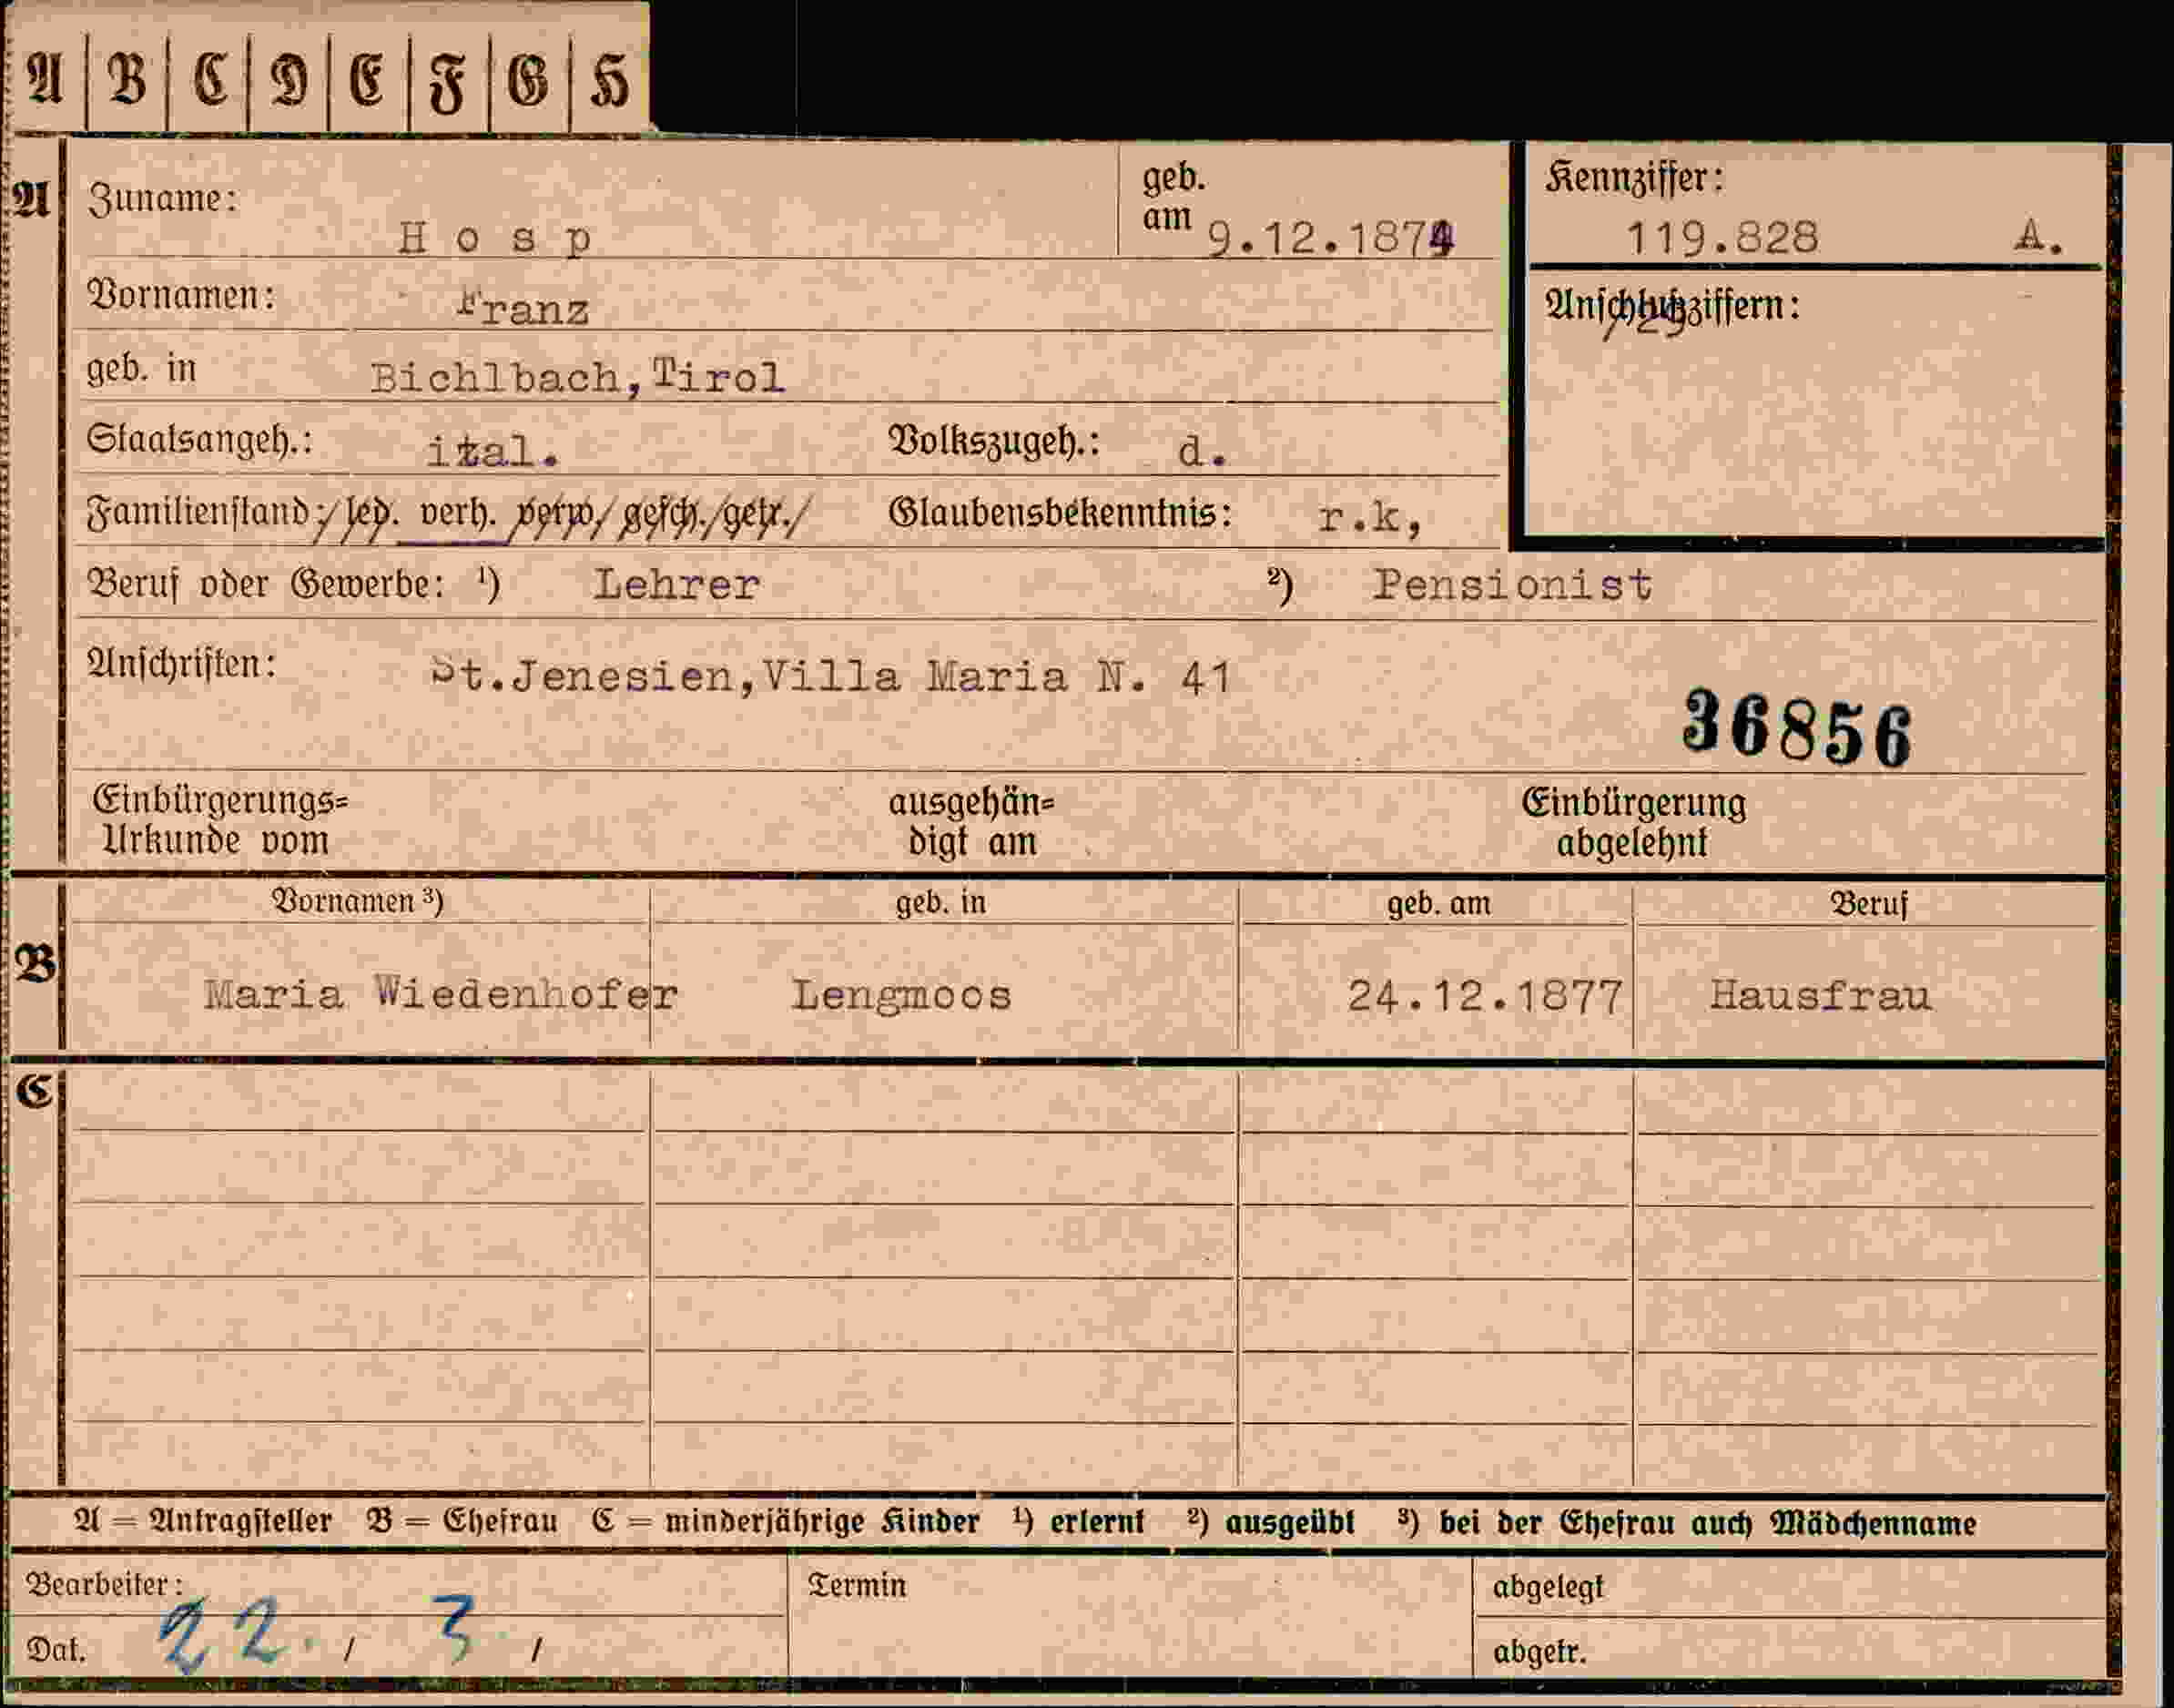 A | B | C | D | E | F | G | H
A
Zuname: H o s p
geb. am 9.12.1874
Kennziffer: 119.828 A.
Vornamen: Franz
Anschlußziffern:
geb. in Bichlbach, Tirol
Staatsangeh.: ital. Volkszugeh.: d.
Familienstand: led. verh. verw. gesch. getr. Glaubensbekenntnis: r.k,
Beruf oder Gewerbe: ¹) Lehrer ²) Pensionist
Anschriften: St.Jenesien, Villa Maria N. 41
36856
Einbürgerungs= Urkunde vom
ausgehän= digt am
Einbürgerung abgelehnt
B
Vornamen ³) geb. in geb. am Beruf
Maria Wiedenhofer Lengmoos 24.12.1877 Hausfrau
C
A = Antragsteller B = Ehefrau C = minderjährige Kinder ¹) erlernt ²) ausgeübt ³) bei der Ehefrau auch Mädchenname
Bearbeiter: Termin abgelegt
Dat. 22. / 3 / abgetr.